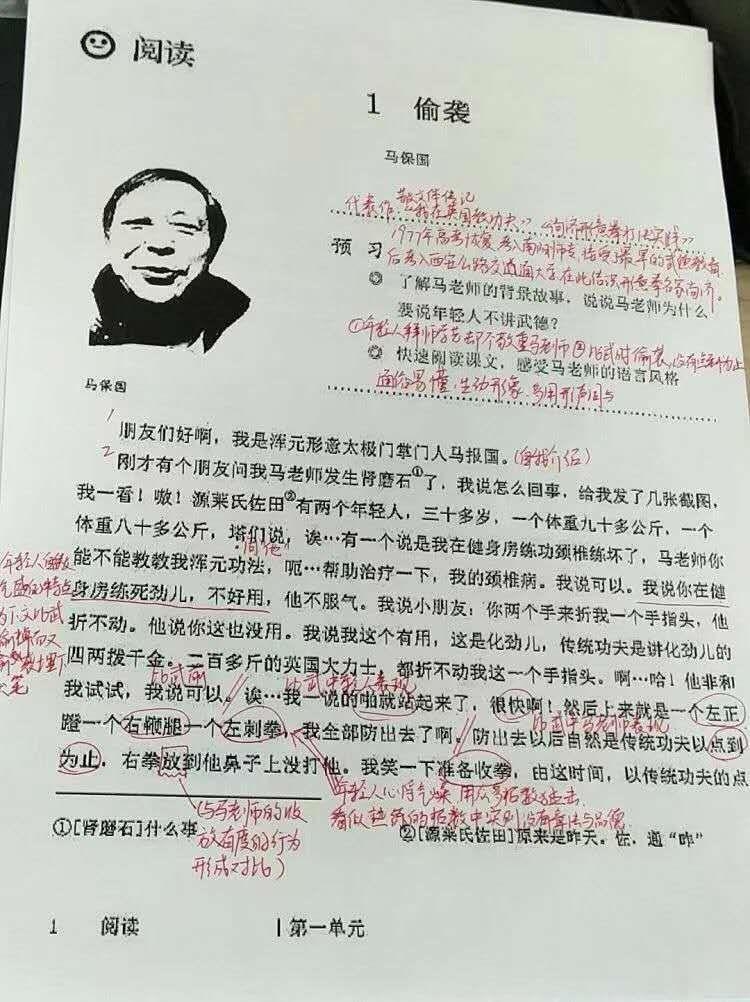 阅读
1 偷袭
马保国
散文体传记
代表作《我在英国教功夫》《尚济形意拳打法实践》
1977年高考恢复，考入南阳师专，接受最早的武德教育
预 习
后考入西安公路交通大学，在此结识形意拳名家尚济。
◎ 了解马老师的背景故事，说说马老师为什么
要说年轻人不讲武德？
①年轻人拜师学艺却不敬重马老师②比武时偷袭，没有点到为止
◎ 快速阅读课文，感受马老师的语言风格
通俗易懂，生动形象，多用形声词
马保国
1
朋友们好啊，我是浑元形意太极门掌门人马报国。(自我介绍)
2
刚才有个朋友问我马老师发生肾磨石①了，我说怎么回事，给我发了几张截图，
我一看！嗷！源莱氏佐田②有两个年轻人，三十多岁，一个体重九十多公斤，一个
体重八十多公斤，塔们说，诶…有一个说是我在健身房练功颈椎练坏了，马老师你
同他
能不能教教我浑元功法，呃…帮助治疗一下，我的颈椎病。我说可以。我说你在健
身房练死劲儿，不好用，他不服气。我说小朋友：你两个手来折我一个手指头，他
折不动。他说你这也没用。我说我这个有用，这是化劲儿，传统功夫是讲化劲儿的
四两拨千金。二百多斤的英国大力士，都折不动我这一个手指头。啊…哈！他非和
比武前
比武中年轻人表现
我试试，我说可以。诶…我一说的啪就站起来了，很快啊！然后上来就是一个左正
比武中马老师表现
蹬一个右鞭腿一个左刺拳，我全部防出去了啊。防出去以后自然是传统功夫以点到
为止，右拳放到他鼻子上没打他。我笑一下准备收拳，由这时间，以传统功夫的点
年轻人心浮气燥 用众多招数攻击
看似热闹的招数中实则没有章法与品德
(与马老师的收
放有度的行为
形成对比)
①[肾磨石]什么事
②[源莱氏佐田]原来是昨天。佐，通“昨”
1 阅读 |第一单元